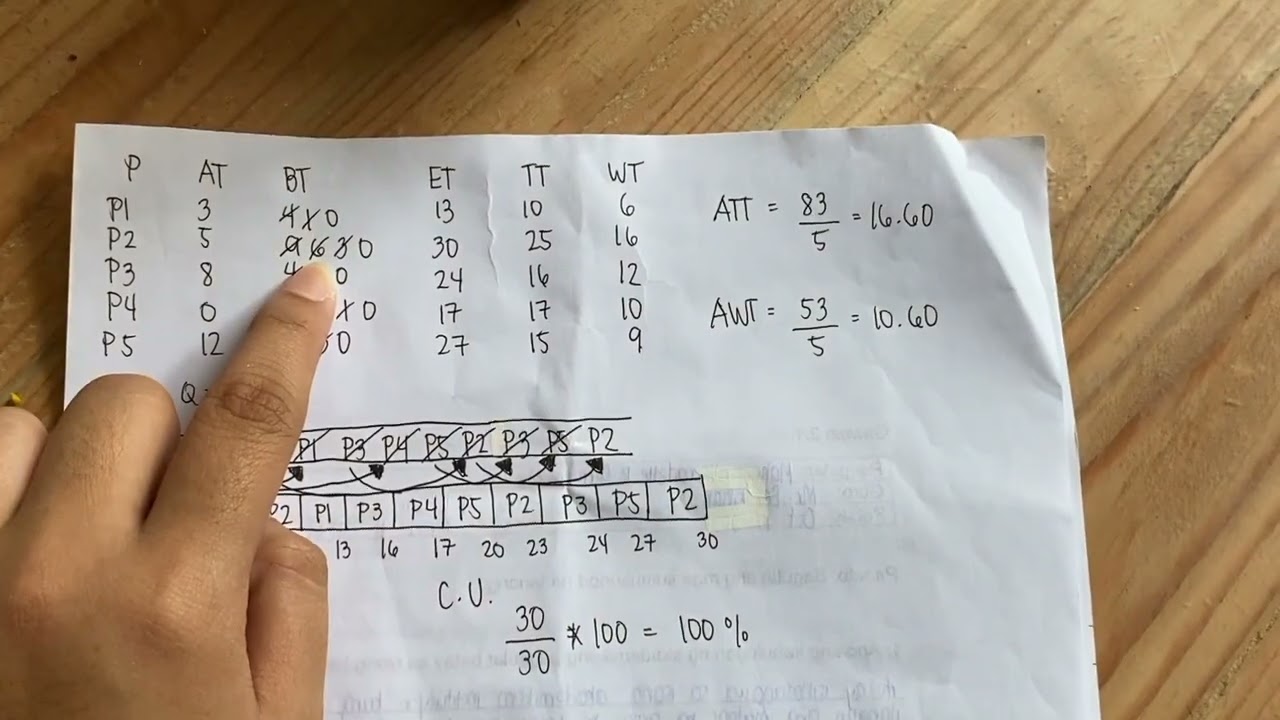 P AT BT ET TT WT
P1 3 4 1 0 13 10 6
P2 5 9 6 3 0 30 25 16
P3 8 4 0 24 16 12
P4 0 1 0 17 17 10
P5 12 0 27 15 9
ATT = 83/5 = 16.60
AWT = 53/5 = 10.60
Q
P1 P3 P4 P5 P2 P3 P5 P2
P2 P1 P3 P4 P5 P2 P3 P5 P2
13 16 17 20 23 24 27 30
C.U.
30/30 * 100 = 100%